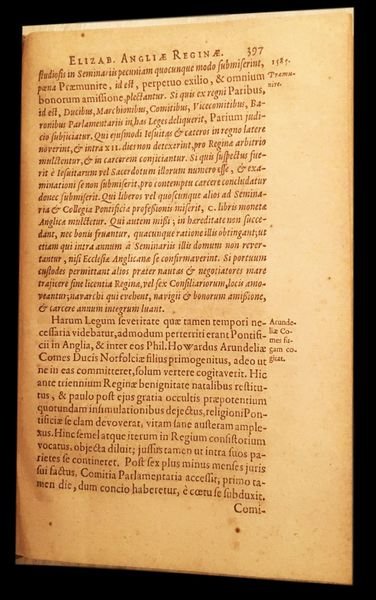 ELIZAB. ANGLIÆ REGINÆ. 397
studiosis in Seminariis pecuniam quocunque modo submiserint,
1585.
pœna Præmunire, id est, perpetuo exilio, & omnium
Præmunire.
bonorum amissione, plectantur. Si quis ex regni Paribus,
id est, Ducibus, Marchionibus, Comitibus, Vicecomitibus, Baronibus
ronibus Parlamentariis in has Leges deliquerit, Parium judicio
cio subjiciatur. Qui ejusmodi Iesuitas & cæteros in regno latere
noverint, & intra XII. dies non detexerint, pro Reginæ arbitrio
mulctentur, & in carcerem conjiciantur. Si quis suspectus fuerit
rit è Iesuitarum vel Sacerdotum illorum numero esse, & examinationi
minationi se non submiserit, pro contemptu carcere concludatur
donec submiserit. Qui liberos vel quoscunque alios ad Seminaria
ria & Collegia Pontificiæ professionis miserit, C. libris monetæ
Anglicæ mulctetur. Qui autem missi; in hæreditate non succedant,
dant, nec bonis fruantur, quacunque ratione illis obtingant; ut
etiam qui intra annum à Seminariis illis domum non revertantur,
tantur, nisi Ecclesiæ Anglicanæ se confirmaverint. Si portuum
custodes permittant alios præter nautas & negotiatores mare
trajicere sine licentia Reginæ, vel sex Consiliariorum, loco amoveantur;
veantur; navarchi qui evehent, navigii & bonorum amissione,
& carcere annum integrum luant.
Harum Legum severitate quæ tamen tempori necessaria
Arundeliæ
cessaria videbatur, admodum perterriti erant Pontificii
liæ Comes
cii in Anglia, & inter eos Phil. Howardus Arundeliæ
mes fugam
Comes Ducis Norfolciæ filius primogenitus, adeo ut
gam cogitat.
ne in eas committeret, solum vertere cogitaverit. Hic
gitat.
ante triennium Reginæ benignitate natalibus restitutus,
tus, & paulo post ejus gratia occultis præpotentium
quorundam insimulationibus dejectus, religioni Pontificiæ
tificiæ se clam devoverat, vitam sane austeram amplexus.
xus. Hinc semel atque iterum in Regium consistorium
vocatus, objecta diluit; jussus tamen ut intra suos parietes
rietes se contineret. Post sex plus minus menses juris
sui factus, Comitia Parlamentaria accessit; primo tamen
men die, dum concio haberetur, è cœtu se subduxit.
Comi-